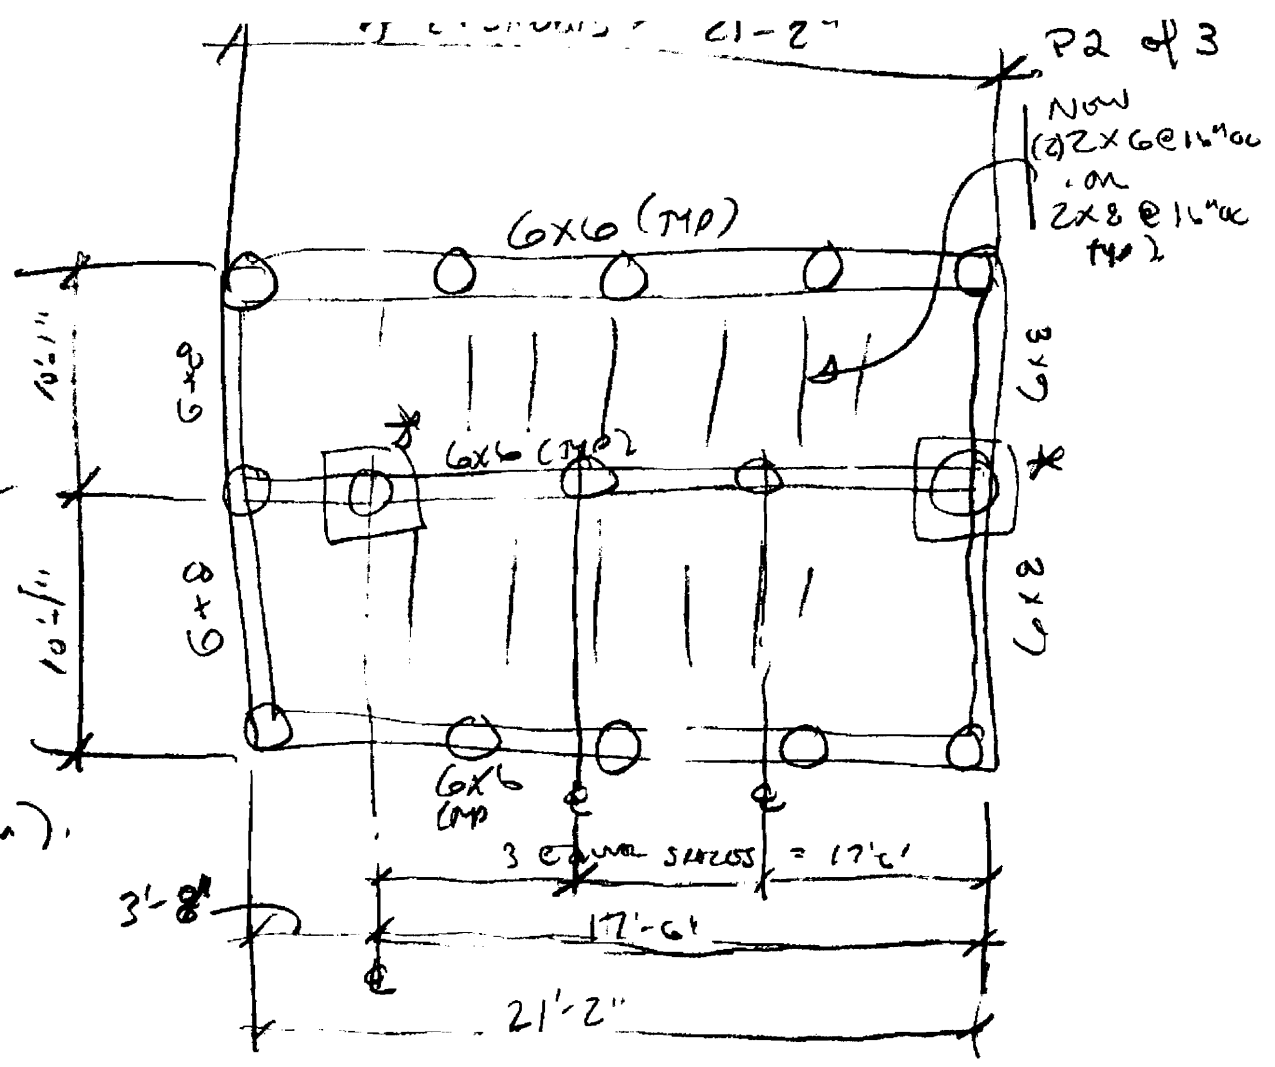 21-2"
P2 of 3
NEW
(2) 2X6@16"oc
or
2X8 @ 16"oc
typ
6X6 (TYP)
10'-1"
6x8
3x6
6x6 (TYP)
10'-1"
6x8
3x6
6X6
TYP
℄ ℄
3 EQUAL SPACES = 17'6'
3'-8"
17'-6'
℄
21'-2"